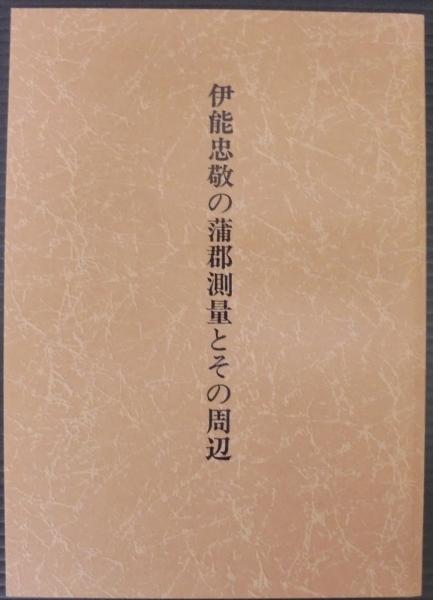 伊能忠敬の蒲郡測量とその周辺